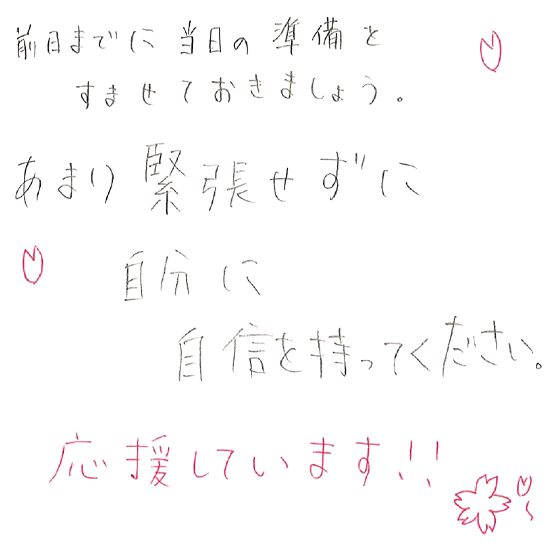 前日までに当日の準備を
すませておきましょう。
あまり緊張せずに
自分に
自信を持ってください。
応援しています!!